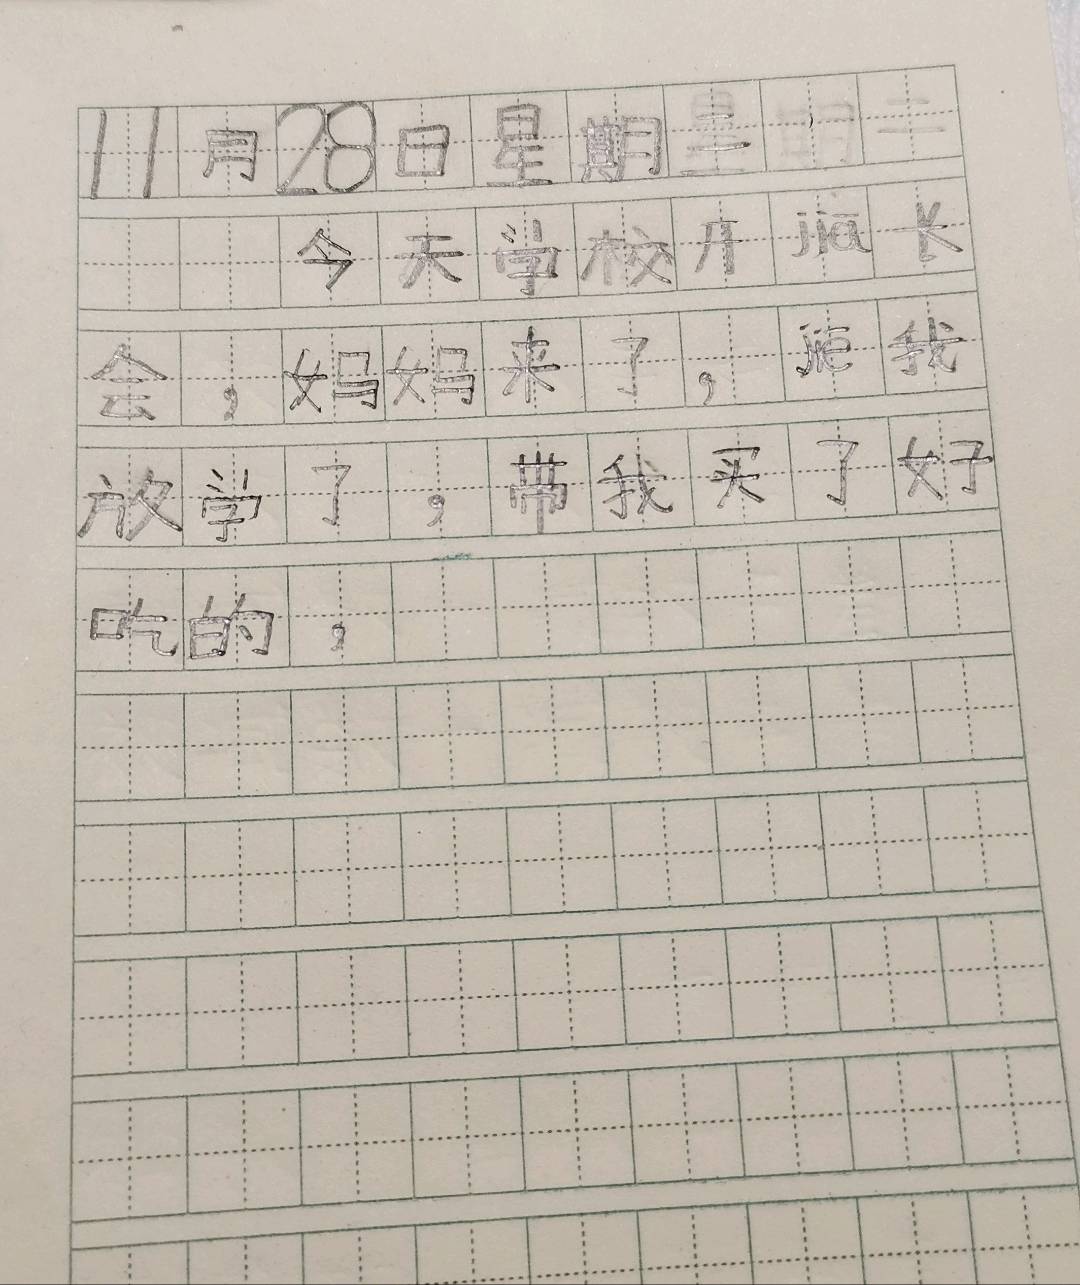 11月28日星期二
今天学校开jiā长
会，妈妈来了，jiē我
放学了，带我买了好
吃的，